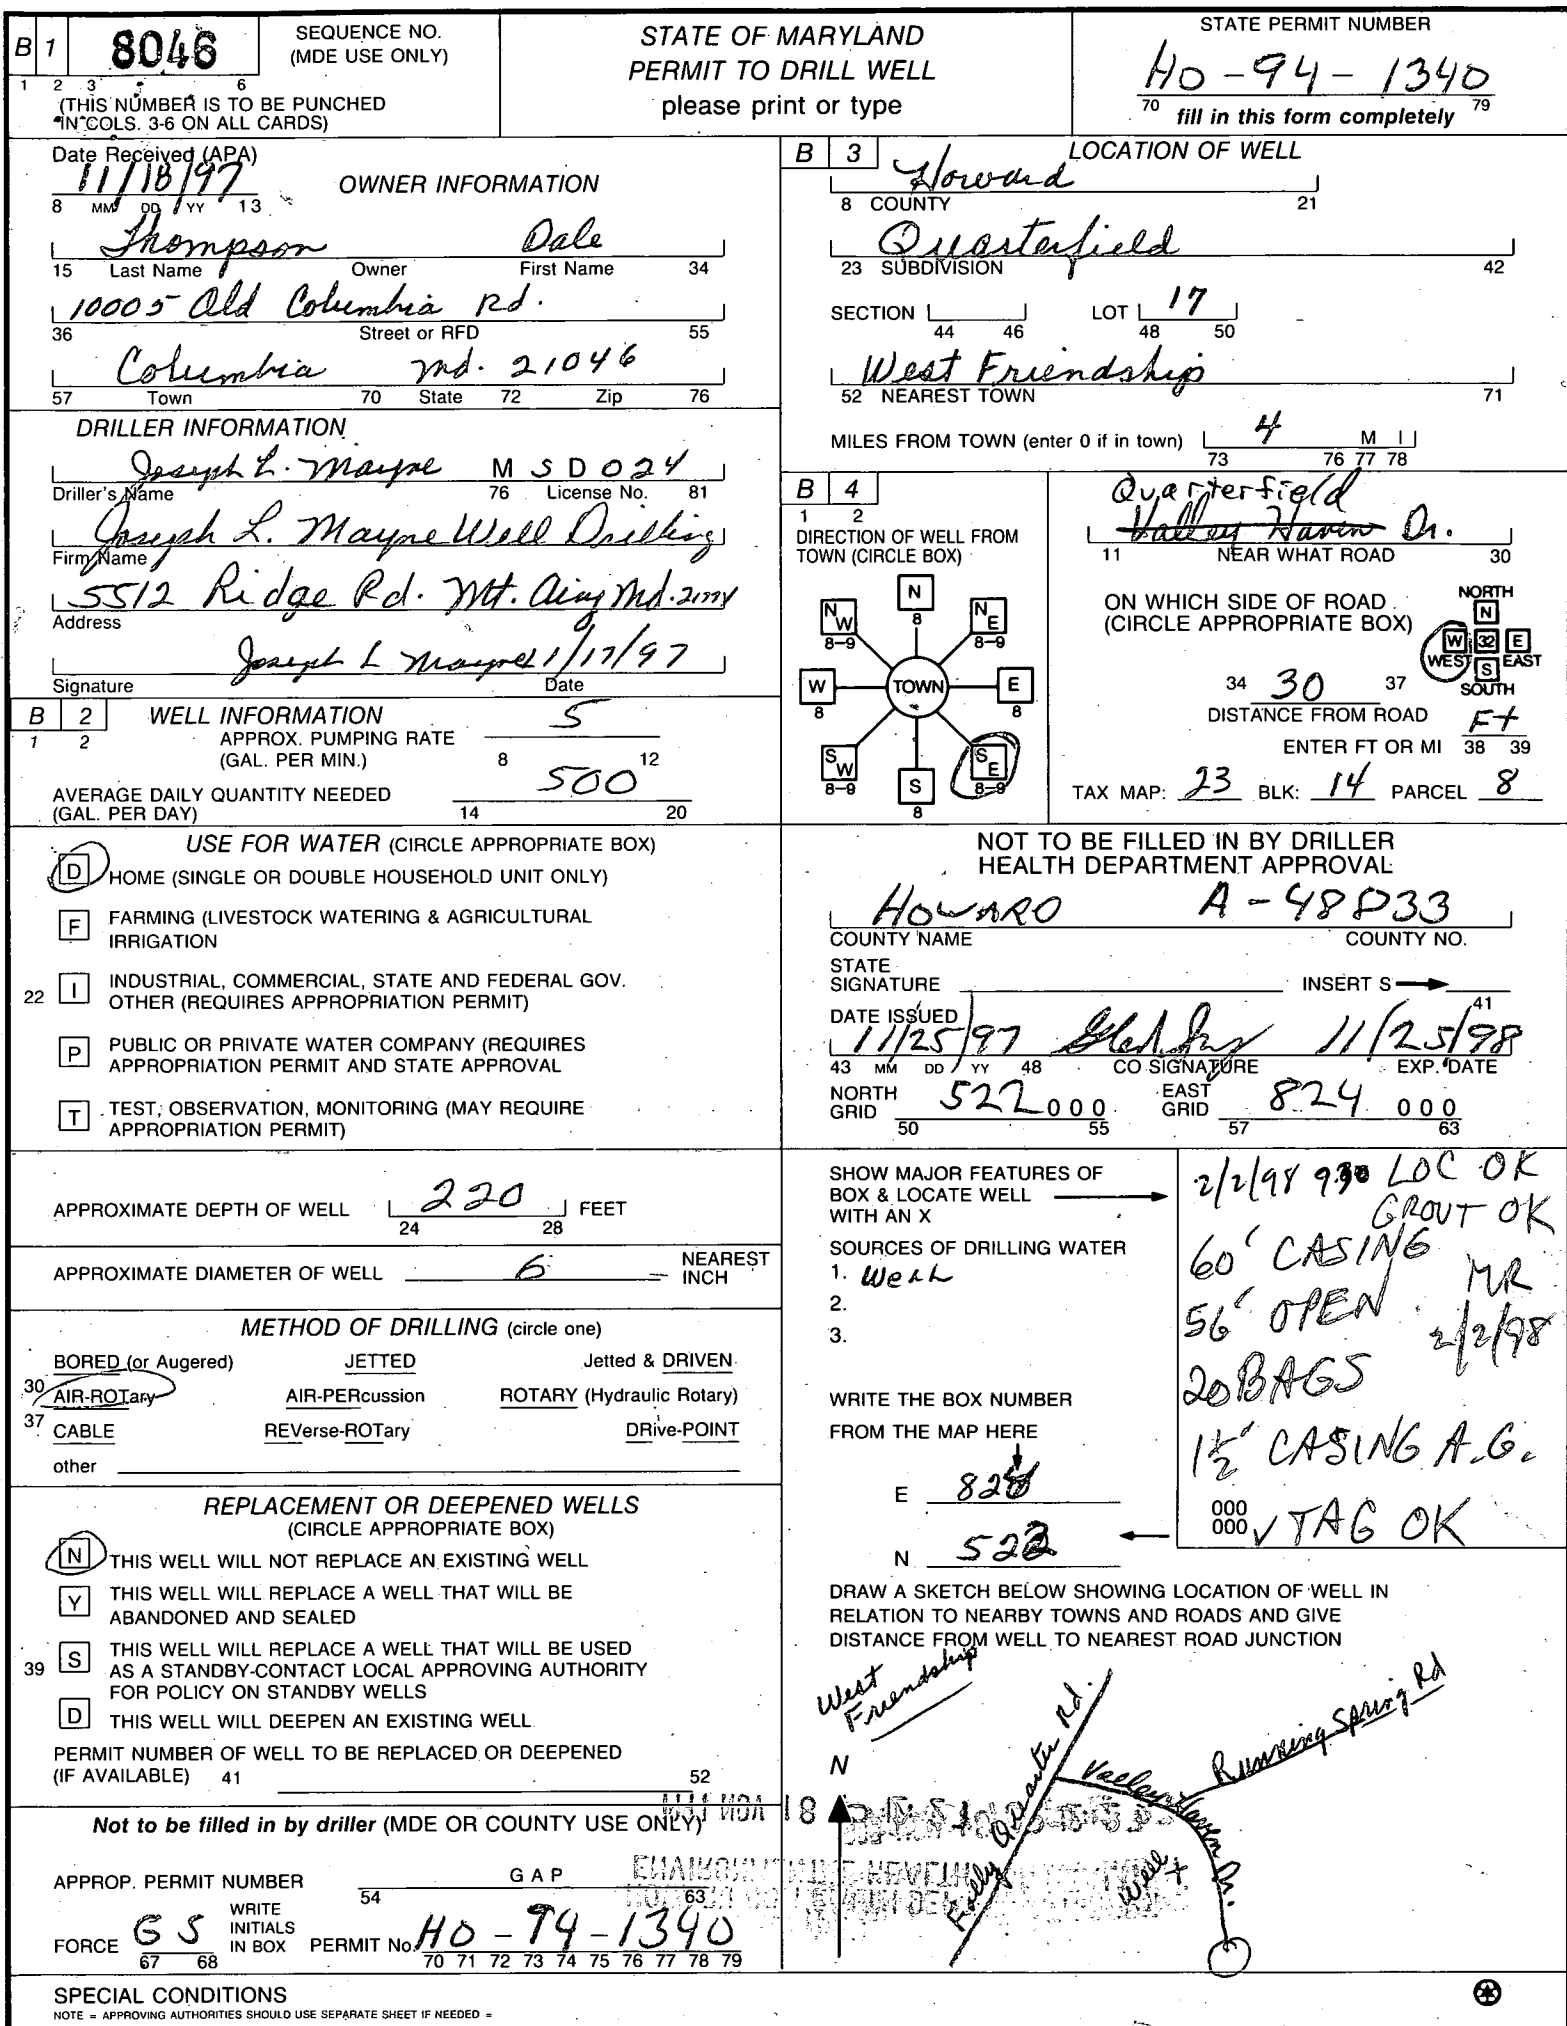 B 1 8046 SEQUENCE NO.
(MDE USE ONLY)
1 2 3 6
(THIS NUMBER IS TO BE PUNCHED
IN COLS. 3-6 ON ALL CARDS)
STATE OF MARYLAND
PERMIT TO DRILL WELL
please print or type
STATE PERMIT NUMBER
HO-94-1340
70 fill in this form completely 79
Date Received (APA)
11/18/97
8 MM DD YY 13
OWNER INFORMATION
Thompson Dale
15 Last Name Owner First Name 34
10005 Old Columbia Rd.
36 Street or RFD 55
Columbia Md. 21046
57 Town 70 State 72 Zip 76
DRILLER INFORMATION
Joseph L. Mayne M S D 0 2 4
Driller's Name 76 License No. 81
Joseph L. Mayne Well Drilling
Firm Name
5512 Ridge Rd. Mt. Airy Md.
Address
Joseph L Mayne 11/17/97
Signature Date
B 2 WELL INFORMATION
1 2
APPROX. PUMPING RATE 5
(GAL. PER MIN.) 8 12
AVERAGE DAILY QUANTITY NEEDED 500
(GAL. PER DAY) 14 20
USE FOR WATER (CIRCLE APPROPRIATE BOX)
D HOME (SINGLE OR DOUBLE HOUSEHOLD UNIT ONLY)
F FARMING (LIVESTOCK WATERING & AGRICULTURAL
IRRIGATION
22 I INDUSTRIAL, COMMERCIAL, STATE AND FEDERAL GOV.
OTHER (REQUIRES APPROPRIATION PERMIT)
P PUBLIC OR PRIVATE WATER COMPANY (REQUIRES
APPROPRIATION PERMIT AND STATE APPROVAL
T TEST, OBSERVATION, MONITORING (MAY REQUIRE
APPROPRIATION PERMIT)
APPROXIMATE DEPTH OF WELL 220 FEET
24 28
APPROXIMATE DIAMETER OF WELL 6 NEAREST
INCH
METHOD OF DRILLING (circle one)
BORED (or Augered) JETTED Jetted & DRIVEN
30 AIR-ROTary AIR-PERcussion ROTARY (Hydraulic Rotary)
37 CABLE REVerse-ROTary DRive-POINT
other
REPLACEMENT OR DEEPENED WELLS
(CIRCLE APPROPRIATE BOX)
N THIS WELL WILL NOT REPLACE AN EXISTING WELL
Y THIS WELL WILL REPLACE A WELL THAT WILL BE
ABANDONED AND SEALED
39 S THIS WELL WILL REPLACE A WELL THAT WILL BE USED
AS A STANDBY-CONTACT LOCAL APPROVING AUTHORITY
FOR POLICY ON STANDBY WELLS
D THIS WELL WILL DEEPEN AN EXISTING WELL
PERMIT NUMBER OF WELL TO BE REPLACED OR DEEPENED
(IF AVAILABLE) 41 52
Not to be filled in by driller (MDE OR COUNTY USE ONLY)
APPROP. PERMIT NUMBER G A P
54 63
FORCE G S WRITE
INITIALS
IN BOX PERMIT No. HO-94-1340
67 68 70 71 72 73 74 75 76 77 78 79
SPECIAL CONDITIONS
NOTE = APPROVING AUTHORITIES SHOULD USE SEPARATE SHEET IF NEEDED =
B 3 LOCATION OF WELL
Howard
8 COUNTY 21
Quarterfield
23 SUBDIVISION 42
SECTION LOT 17
44 46 48 50
West Friendship
52 NEAREST TOWN 71
MILES FROM TOWN (enter 0 if in town) 4 M I
73 76 77 78
B 4
1 2
DIRECTION OF WELL FROM
TOWN (CIRCLE BOX)
N 8
NW 8-9 NE 8-9
W 8 TOWN E 8
SW 8-9 SE 8-9
S 8
Quarterfield
Valley Haven Dr.
11 NEAR WHAT ROAD 30
ON WHICH SIDE OF ROAD
(CIRCLE APPROPRIATE BOX)
NORTH
N
W 32 E
WEST S EAST
SOUTH
34 30 37
DISTANCE FROM ROAD Ft
ENTER FT OR MI 38 39
TAX MAP: 23 BLK: 14 PARCEL 8
NOT TO BE FILLED IN BY DRILLER
HEALTH DEPARTMENT APPROVAL
HOWARD A-48833
COUNTY NAME COUNTY NO.
STATE
SIGNATURE INSERT S
41
DATE ISSUED
11/25/97 11/25/98
43 MM DD YY 48 CO SIGNATURE EXP. DATE
NORTH
GRID 522 000
50 55
EAST
GRID 824 000
57 63
SHOW MAJOR FEATURES OF
BOX & LOCATE WELL
WITH AN X
SOURCES OF DRILLING WATER
1. Well
2.
3.
WRITE THE BOX NUMBER
FROM THE MAP HERE
E
N
2/2/98 9:30 LOC OK
GROUT OK
60' CASING
MR
56' OPEN 2/2/98
20 BAGS
1½' CASING A.G.
000
000 ✓ TAG OK
DRAW A SKETCH BELOW SHOWING LOCATION OF WELL IN
RELATION TO NEARBY TOWNS AND ROADS AND GIVE
DISTANCE FROM WELL TO NEAREST ROAD JUNCTION
West
Friendship
N
Folly Quarter Rd.
Valley Haven Dr.
Running Spring Rd
Well X